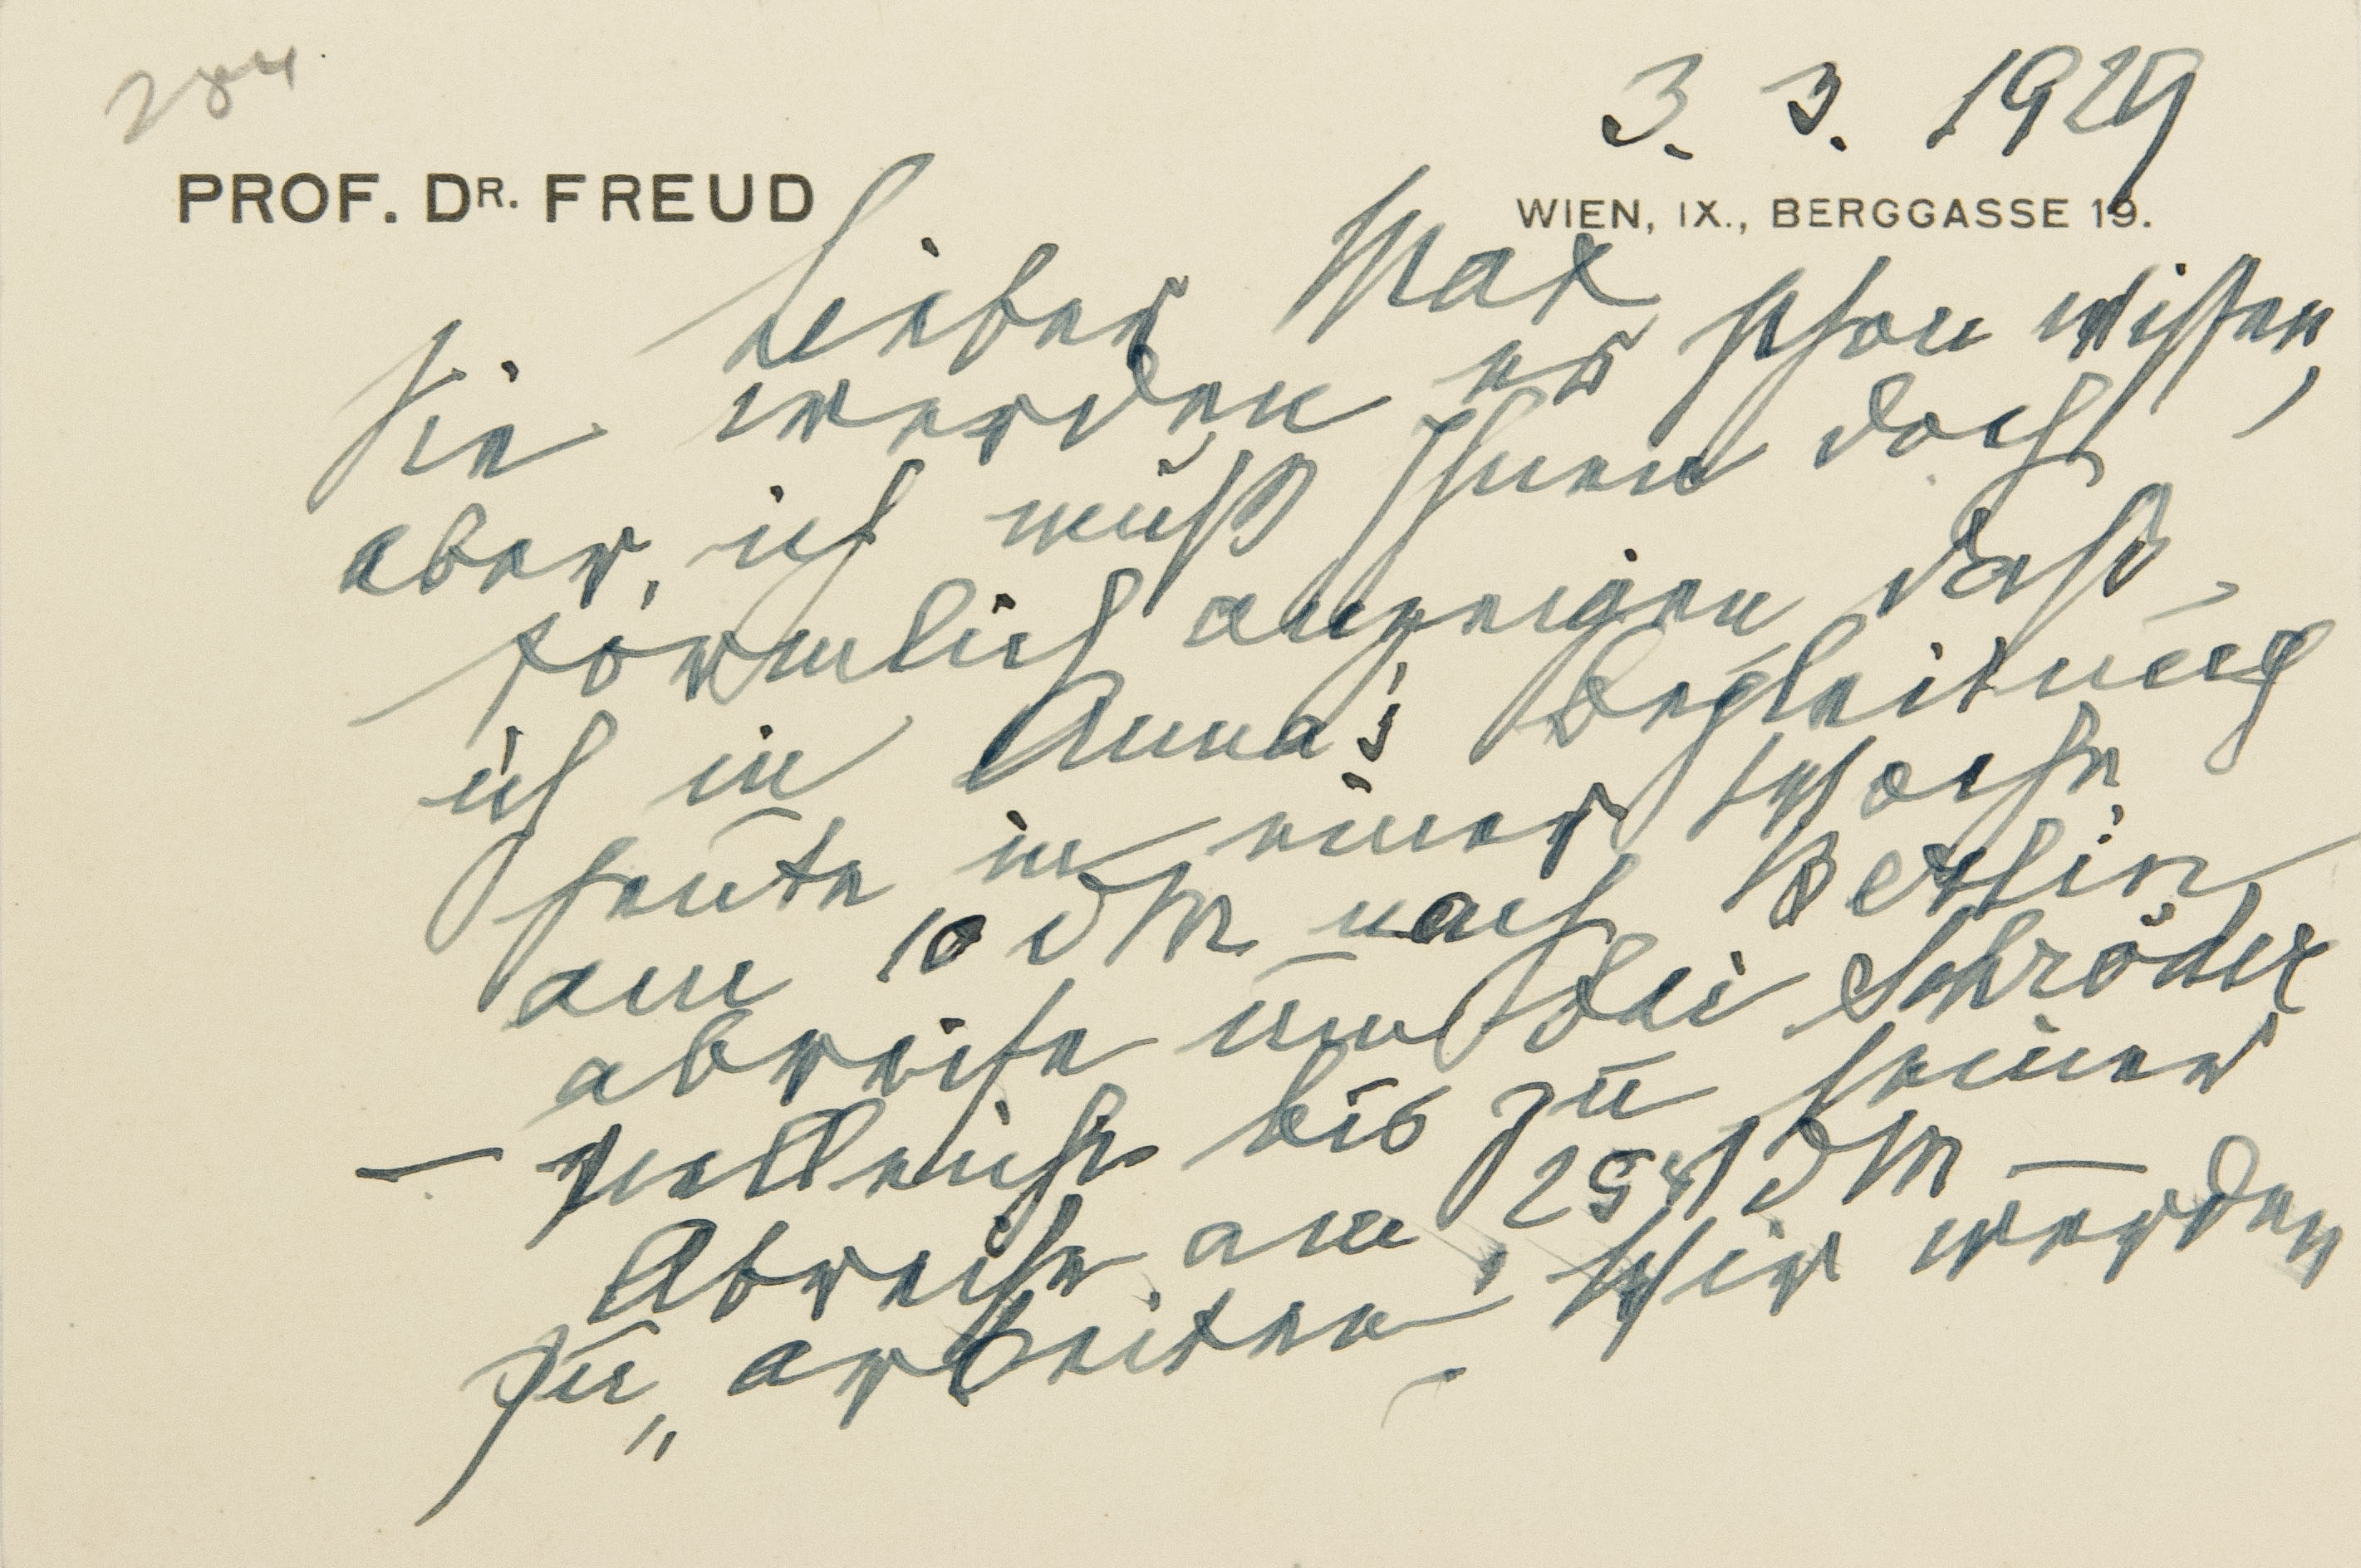 284
3. 3. 1929
PROF. DR. FREUD
WIEN, IX., BERGGASSE 19.
Lieber Max
Sie werden es schon wissen,
aber ich muß Ihnen doch
förmlich anzeigen, daß
ich in Anna's Begleitung
heute in einer Woche
am 10 dM nach Berlin
abreise um bei Schröder
— vielleicht bis zu seiner
Abreise am 25st dM —
zu „arbeiten. Wir werden